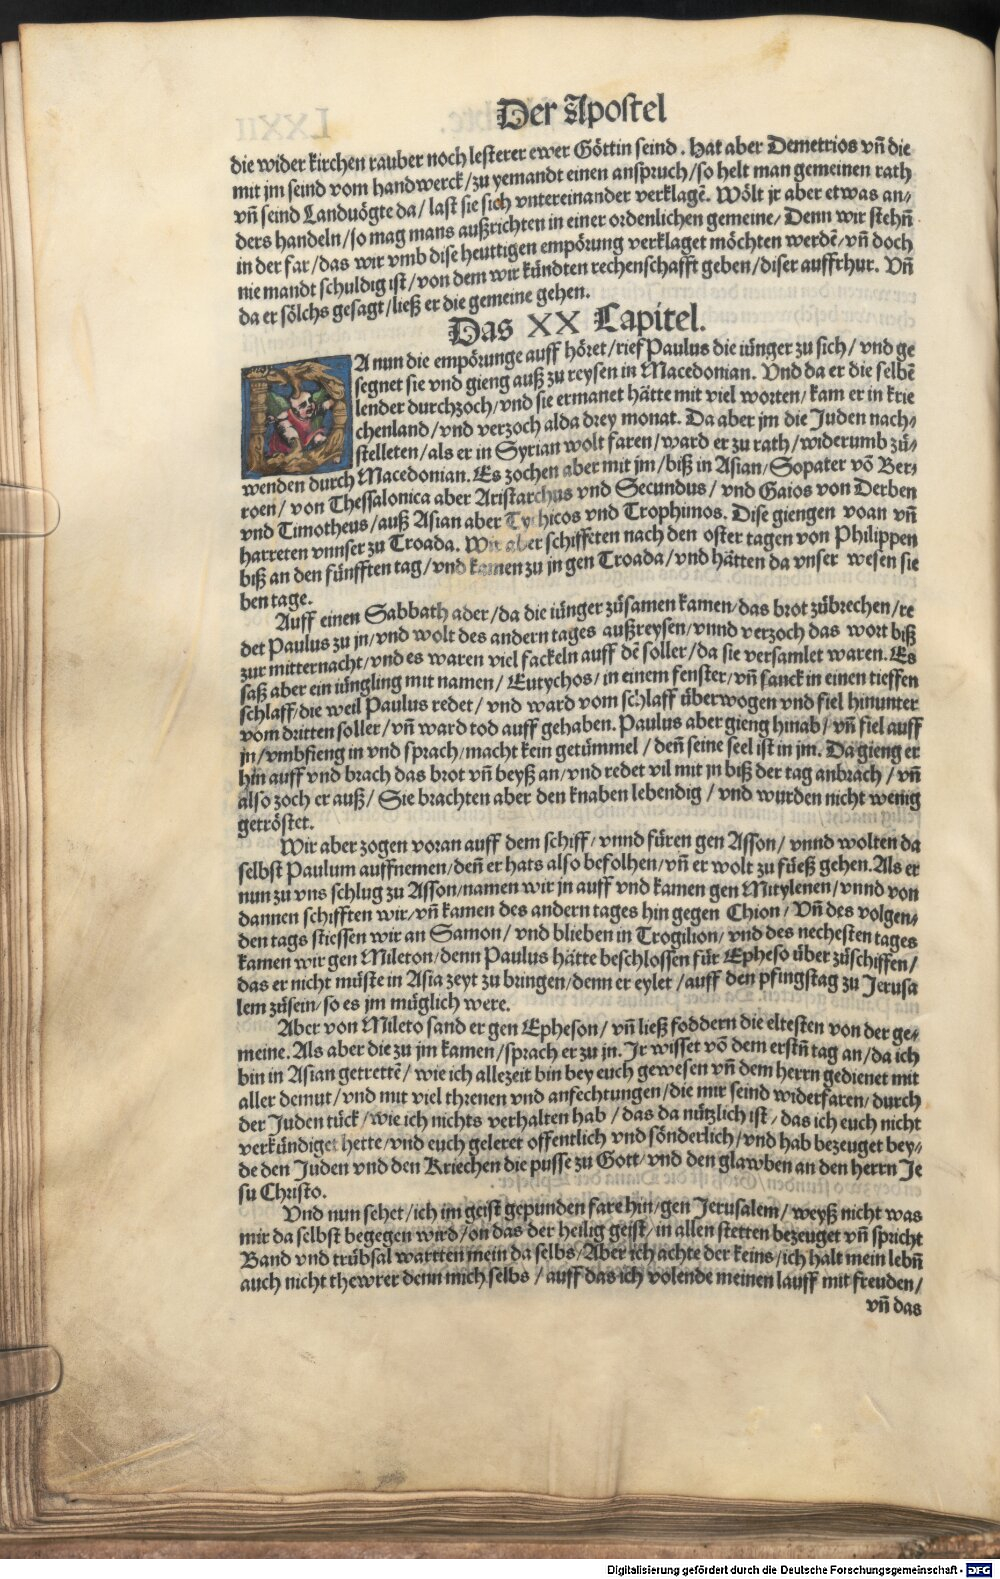 Der Apostel
die wider kirchen rauber noch lesterer ewer Göttin seind . Hat aber Demetrios vn̄ die
mit jm seind vom handwerck/zu yemandt einen anspruch/so helt man gemeinen rath
vn̄ seind Landuögte da/ last sie sich vntereinander verklagē. Wölt jr aber etwas an/
ders handeln/so mag mans außrichten in einer ordenlichen gemeine/ Denn wir stehn̄
in der far/das wir vmb dise heuttigen empörung verklaget möchten werdē/vn̄ doch
nie mandt schuldig ist/von dem wir kündten rechenschafft geben/diser auffrhur. Vn̄
da er sölchs gesagt/ließ er die gemeine gehen.
Das XX Capitel.
DA nun die empörunge auff höret/rief Paulus die iünger zu sich/ vnd ge
segnet sie vnd gieng auß zu reysen in Macedonian. Vnd da er die selbē
lender durchzoch/vnd sie ermanet hätte mit viel worten/kam er in krie
chenland/vnd verzoch alda drey monat. Da aber jm die Juden nach/
stelleten/als er in Syrian wolt faren/ward er zu rath/widerumb zů/
wenden durch Macedonian. Es zochen aber mit jm/biß in Asian/Sopater vō Ber/
roen/ von Thessalonica aber Aristarchus vnd Secundus/ vnd Gaios von Derben
vnd Timotheus/auß Asian aber Tychicos vnd Trophimos. Dise giengen voan vn̄
harreten vnnser zu Troada. Wir aber schiffeten nach den oster tagen von Philippen
biß an den fünfften tag/vnd kamen zu jn gen Troada/vnd hätten da vnser wesen sie
ben tage.
Auff einen Sabbath ader/da die iünger zůsamen kamen/das brot zůbrechen/re
det Paulus zu jn/vnd wolt des andern tages außreysen/vnnd verzoch das wort biß
zur mitternacht/vnd es waren viel fackeln auff dē soller/da sie versamlet waren. Es
saß aber ein iüngling mit namen/ Eutychos/in einem fenster/vn̄ sanck in einen tieffen
schlaff/die weil Paulus redet/ vnd ward vom schlaff überwogen vnd fiel hinunter
vom dritten soller/vn̄ ward tod auff gehaben. Paulus aber gieng hinab/ vn̄ fiel auff
jn/vmbfieng in vnd sprach/macht kein getümmel/ den̄ seine seel ist in jm. Da gieng er
hin auff vnd brach das brot vn̄ beyß an/vnd redet vil mit jn biß der tag anbrach/vn̄
also zoch er auß/ Sie brachten aber den knaben lebendig/ vnd wurden nicht wenig
getröstet.
Wir aber zogen voran auff dem schiff/ vnnd fůren gen Asson/ vnnd wolten da
selbst Paulum auffnemen/den̄ er hats also befolhen/vn̄ er wolt zu füeß gehen. Als er
nun zu vns schlug zu Asson/namen wir jn auff vnd kamen gen Mitylenen/vnnd von
dannen schifften wir/vn̄ kamen des andern tages hin gegen Chion/ Vn̄ des volgen/
den tags stiessen wir an Samon/ vnd blieben in Trogilion/vnd des nechesten tages
kamen wir gen Mileton/denn Paulus hätte beschlossen für Epheso über zůschiffen/
das er nicht müste in Asia zeyt zu bringen/denn er eylet/auff den pfingstag zu Jerusa
lem zůsein/so es jm müglich were.
Aber von Mileto sand er gen Epheson/ vn̄ ließ foddern die eltesten von der ge/
meine. Als aber die zu jm kamen/sprach er zu jn. Jr wisset vō dem erstn̄ tag an/da ich
bin in Asian getrettē/ wie ich allezeit bin bey euch gewesen vn̄ dem herrn gedienet mit
aller demut/vnd mit viel threnen vnd anfechtungen/die mir seind widerfaren/durch
der Juden tück/wie ich nichts verhalten hab/das da nützlich ist/das ich euch nicht
verkündiget hette/vnd euch geleret offentlich vnd sönderlich/vnd hab bezeuget bey/
de den Juden vnd den Kriechen die pusse zu Gott/vnd den glawben an den herrn Je
su Christo.
Vnd nun sehet/ich im geist gepunden fare hin/gen Jerusalem/weyß nicht was
mir da selbst begegen wird/on das der heilig geist/in allen stetten bezeuget vn̄ spricht
Band vnd trübsal wartten mein da selbs/Aber ich achte der keins/ich halt mein lebn̄
auch nicht thewrer denn mich selbs/auff das ich volende meinen lauff mit freuden/
vn̄ das
Digitalisierung gefördert durch die Deutsche Forschungsgemeinschaft - DFG